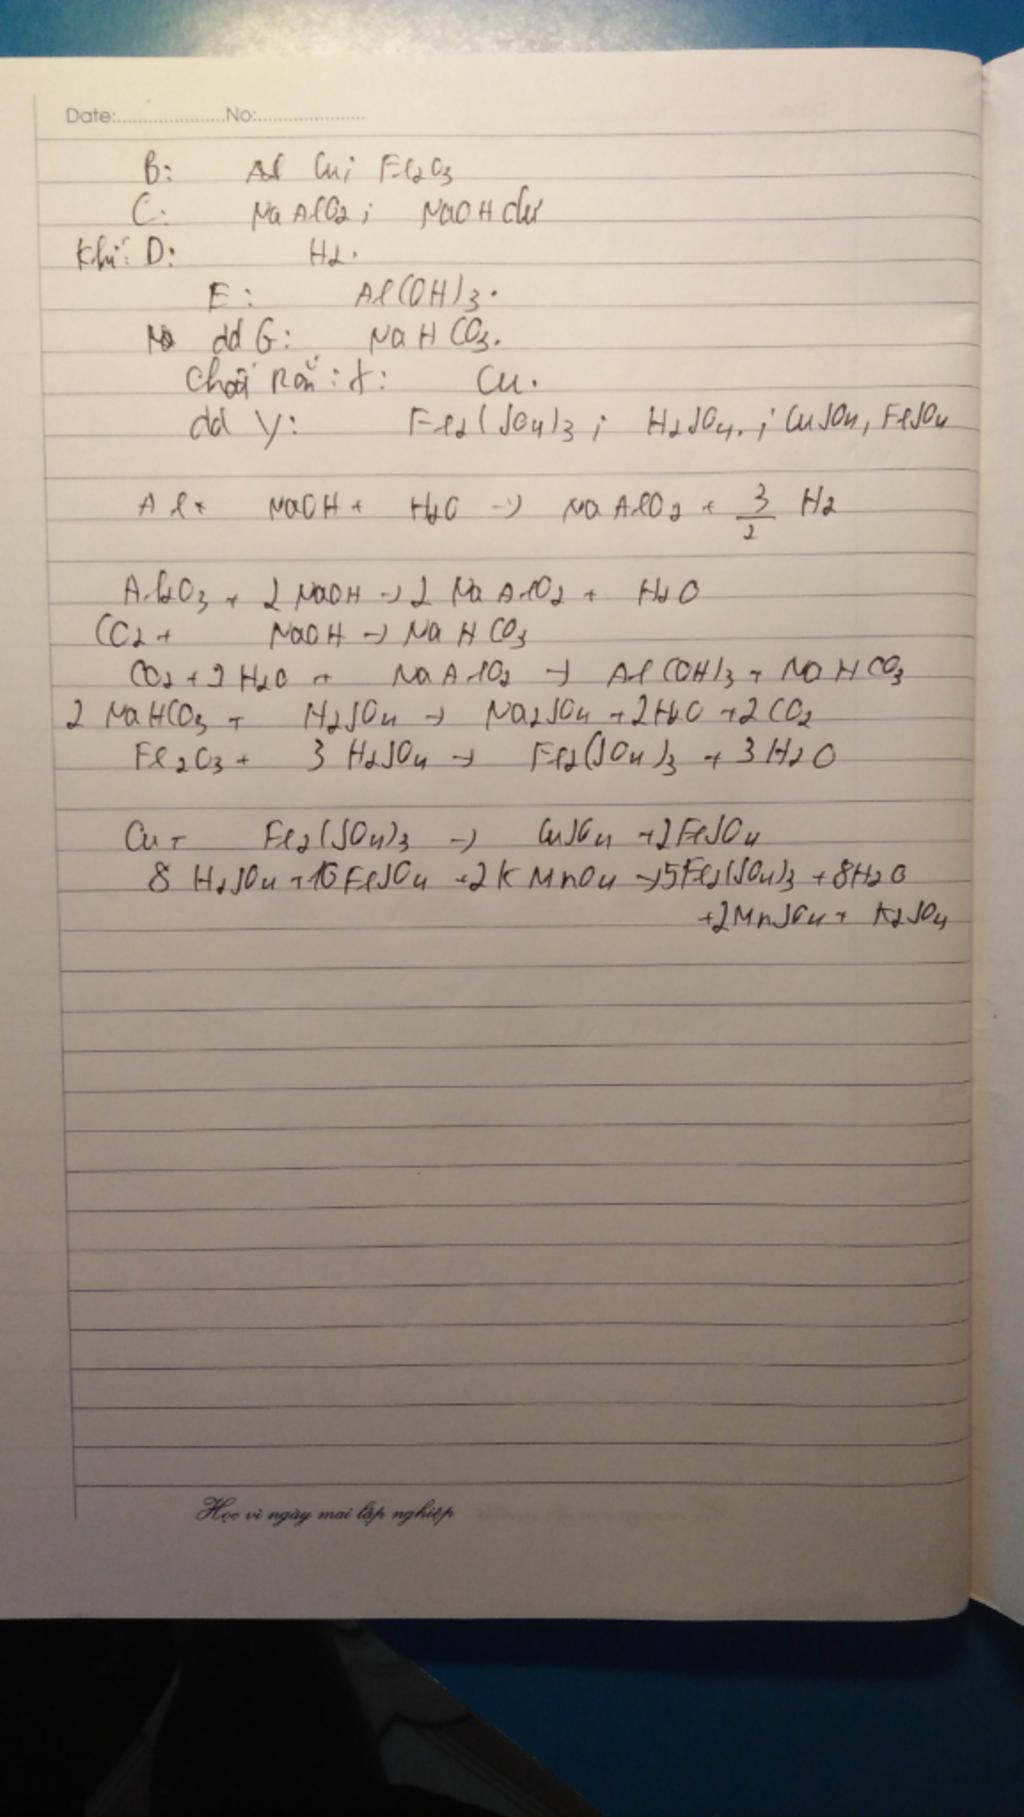 Date:......................No:......................
B: Cu; Fe2O3
C: NaAlO2; NaOH dư
Khí: D: H2.
E: Al(OH)3.
dd G: NaHCO3.
Chất Rắn: X: Cu.
dd Y: Fe2(SO4)3; H2SO4.; CuSO4, FeSO4
Al + NaOH + H2O → NaAlO2 + 3/2 H2
Al2O3 + 2 NaOH → 2 NaAlO2 + H2O
CO2 + NaOH → NaHCO3
CO2 + 2H2O + NaAlO2 → Al(OH)3 + NaHCO3
2 NaHCO3 + H2SO4 → Na2SO4 + 2H2O + 2CO2
Fe2O3 + 3 H2SO4 → Fe2(SO4)3 + 3H2O
Cu + Fe2(SO4)3 → CuSO4 + 2FeSO4
8 H2SO4 + 10 FeSO4 + 2KMnO4 → 5Fe2(SO4)3 + 8H2O
+ 2MnSO4 + K2SO4
Học vì ngày mai lập nghiệp